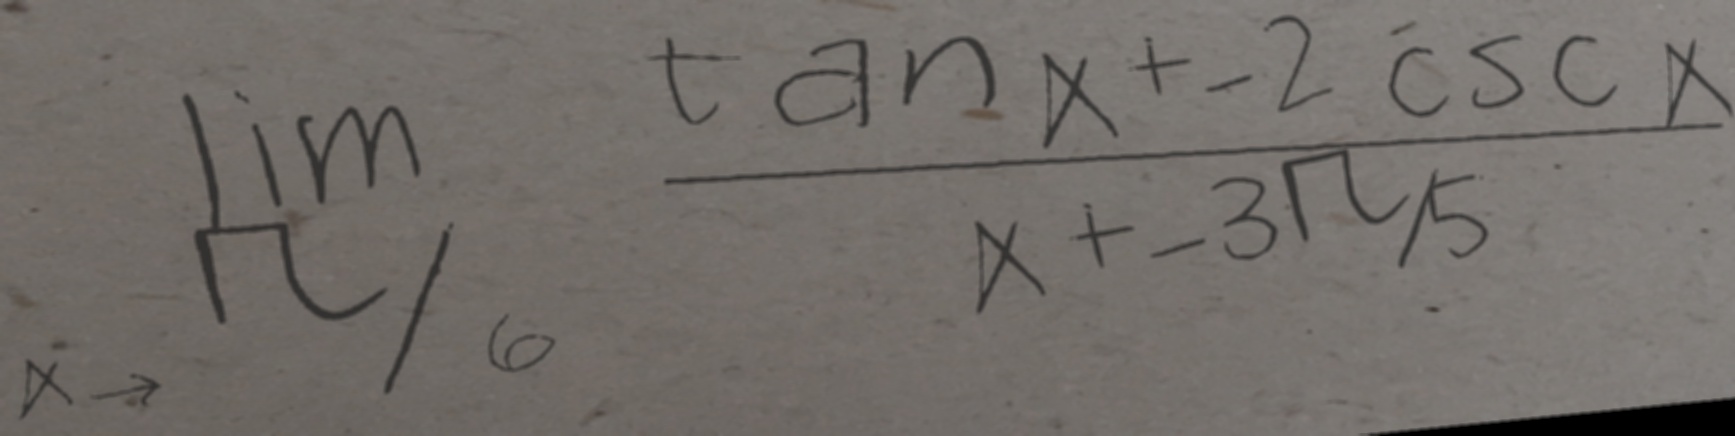 lim x→π/6 (tan x + -2 csc x) / (x + -3π/5)